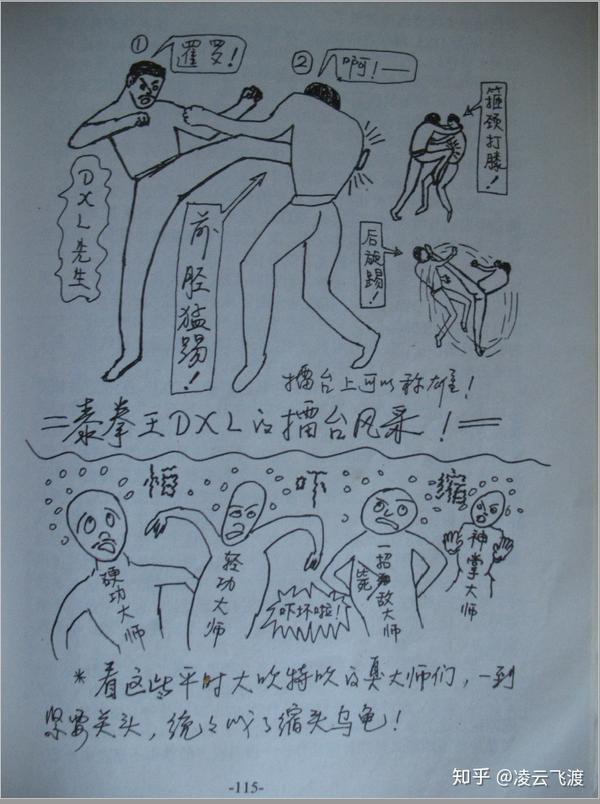 ①
②
啊！—
箍颈打膝！
DXL先生
前胫猛踢！
后旋踢！
擂台上可以称雄！
=泰拳王DXL的擂台风采！=
吓
缩
硬功大师
轻功大师
吓坏啦！
一招毙敌大师
神掌大师
*看这些平时大吹特吹的真大师们，一到
紧要关头，统々
了缩头乌龟！
-115-
知乎 @凌云飞渡